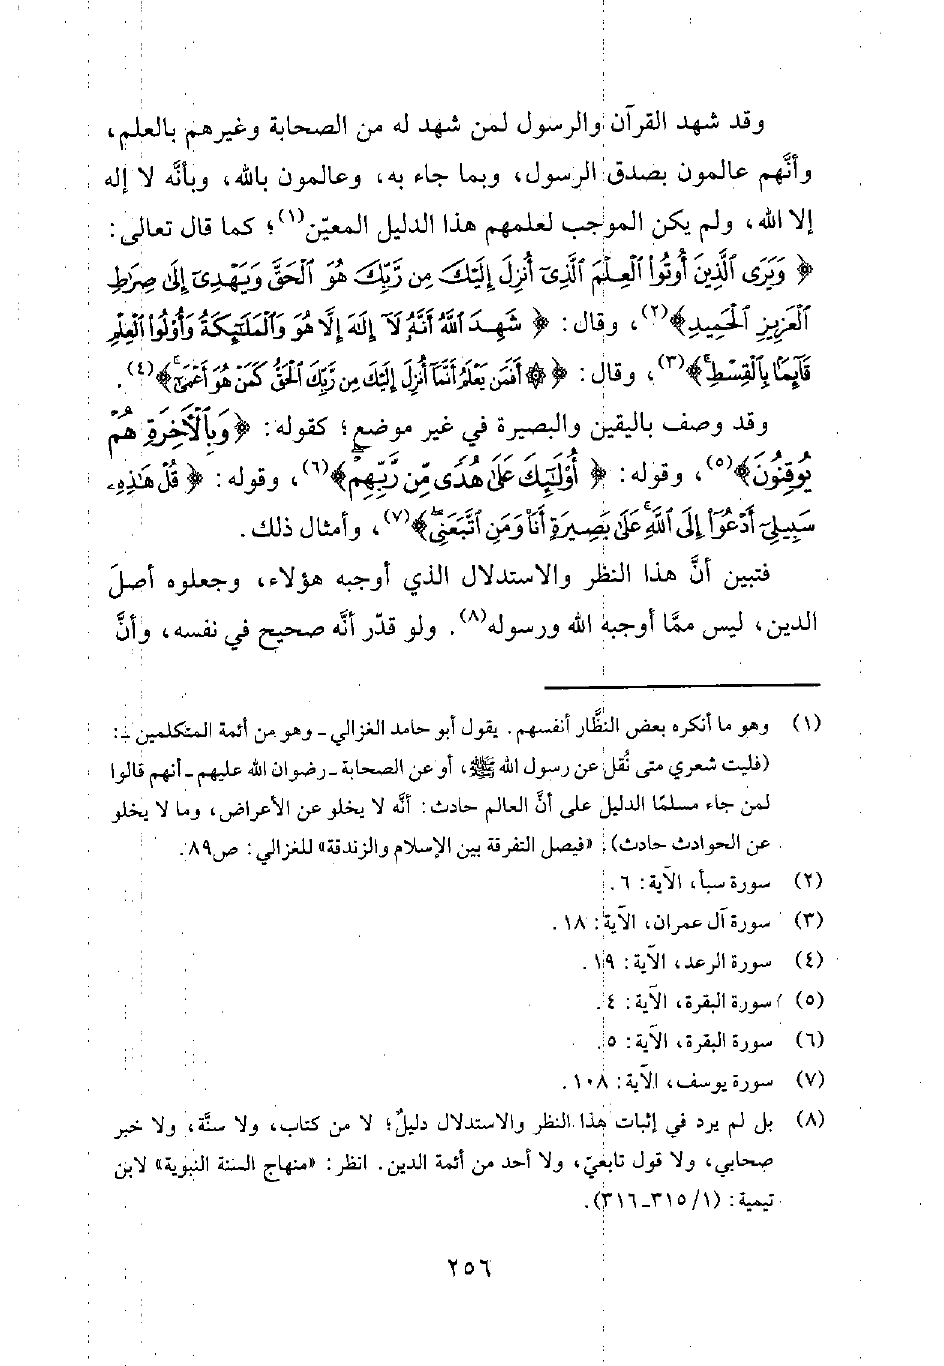 وقد شهد القرآن والرسول لمن شهد له من الصحابة وغيرهم بالعلم،
وأنَّهم عالمون بصدق الرسول، وبما جاء به، وعالمون بالله، وبأنَّه لا إله
إلا الله، ولم يكن الموجب لعلمهم هذا الدليل المعيّن(١)؛ كما قال تعالى:
﴿ وَيَرَى ٱلَّذِينَ أُوتُوا۟ ٱلْعِلْمَ ٱلَّذِىٓ أُنزِلَ إِلَيْكَ مِن رَّبِّكَ هُوَ ٱلْحَقَّ وَيَهْدِىٓ إِلَىٰ صِرَٰطِ
ٱلْعَزِيزِ ٱلْحَمِيدِ﴾(٢)، وقال: ﴿ شَهِدَ ٱللَّهُ أَنَّهُۥ لَآ إِلَٰهَ إِلَّا هُوَ وَٱلْمَلَٰٓئِكَةُ وَأُو۟لُوا۟ ٱلْعِلْمِ
قَآئِمًۢا بِٱلْقِسْطِ ۚ﴾(٣)، وقال: ﴿ ۞ أَفَمَن يَعْلَمُ أَنَّمَآ أُنزِلَ إِلَيْكَ مِن رَّبِّكَ ٱلْحَقُّ كَمَنْ هُوَ أَعْمَىٰٓ ۚ﴾(٤).
وقد وصف باليقين والبصيرة في غير موضع؛ كقوله: ﴿ وَبِٱلْءَاخِرَةِ هُمْ
يُوقِنُونَ﴾(٥)، وقوله: ﴿ أُو۟لَٰٓئِكَ عَلَىٰ هُدًى مِّن رَّبِّهِمْ ۖ﴾(٦)، وقوله: ﴿ قُلْ هَٰذِهِۦ
سَبِيلِىٓ أَدْعُوٓا۟ إِلَى ٱللَّهِ ۚ عَلَىٰ بَصِيرَةٍ أَنَا۠ وَمَنِ ٱتَّبَعَنِى ۖ﴾(٧)، وأمثال ذلك.
فتبين أنَّ هذا النظر والاستدلال الذي أوجبه هؤلاء، وجعلوه أصلَ
الدين، ليس ممَّا أوجبه الله ورسوله(٨). ولو قدّر أنَّه صحيح في نفسه، وأنَّ
(١) وهو ما أنكره بعض النظَّار أنفسهم. يقول أبو حامد الغزالي ـ وهو من أئمة المتكلمين ـ:
(فليت شعري متى نُقل عن رسول الله ﷺ، أو عن الصحابة ـ رضوان الله عليهم ـ أنهم قالوا
لمن جاء مسلمًا الدليل على أنَّ العالم حادث: أنَّه لا يخلو عن الأعراض، وما لا يخلو
عن الحوادث حادث): «فيصل التفرقة بين الإسلام والزندقة» للغزالي: ص٨٩.
(٢) سورة سبأ، الآية: ٦.
(٣) سورة آل عمران، الآية: ١٨.
(٤) سورة الرعد، الآية: ١٩.
(٥) سورة البقرة، الآية: ٤.
(٦) سورة البقرة، الآية: ٥.
(٧) سورة يوسف، الآية: ١٠٨.
(٨) بل لم يرد في إثبات هذا النظر والاستدلال دليلٌ؛ لا من كتاب، ولا سنَّة، ولا خبر
صحابي، ولا قول تابعيّ، ولا أحد من أئمة الدين. انظر: «منهاج السنة النبوية» لابن
تيمية: (١/ ٣١٥ـ٣١٦).
٢٥٦